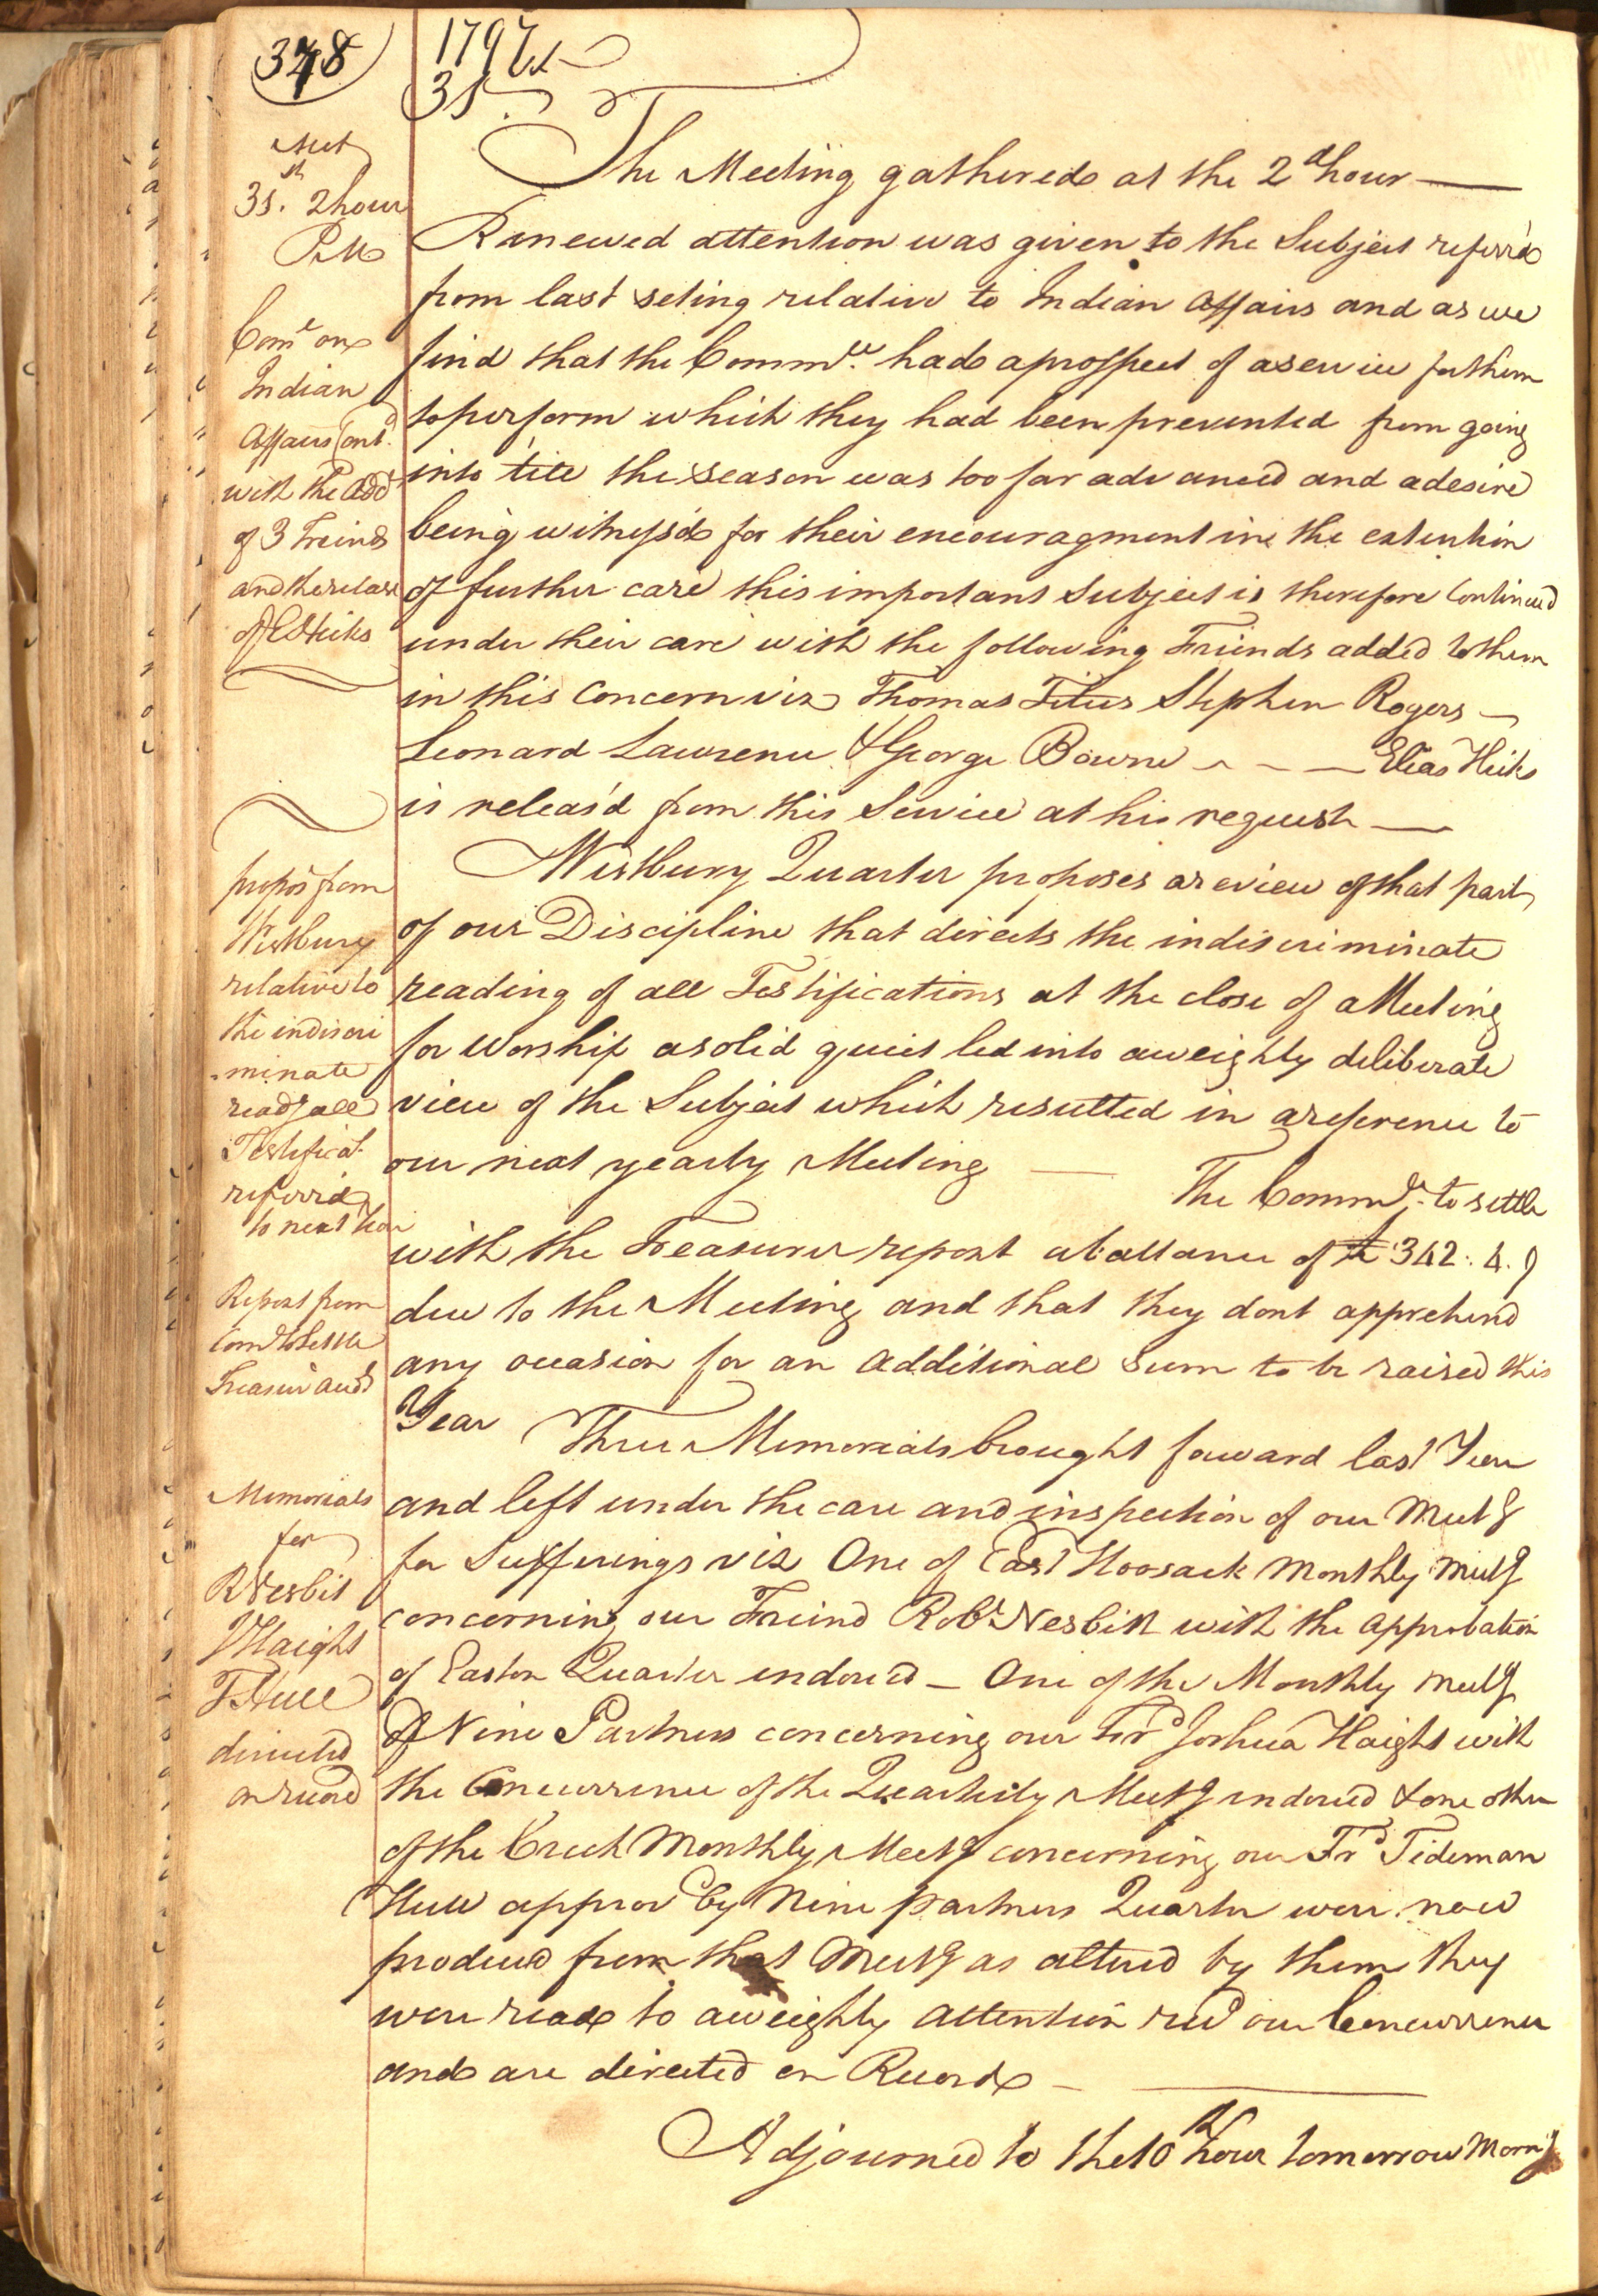 348
1797
31
Meet
31st. 2 hour
P.M
The Meeting gathered at the 2d hour
Renewed attention was given to the Subject referr'd
from last seting relative to Indian Affairs and as we
find that the Committee had a prospect of a service for them
to perform which they had been prevented from going
into till the season was too far advanced and a desire
being witness'd for their encouragment in the extention
of further care this important Subject is therefore Continued
under their care with the following Friends added to them
in this Concern viz Thomas Titus Stephen Rogers
Leonard Lawrence & George Bowne Elias Hicks
is releas'd from this Service at his request
Come on
Indian
Affairs Contd
with the Add
of 3 Freinds
and the release
of E Hicks
Westbury Quarter proposes a review of that part
of our Discipline that directs the indiscriminate
reading of all Testifications at the close of a Meeting
for Worship a solid quiet led into a weighty deliberate
view of the Subject which resulted in a reference to
our next yearly Meeting The Committee to settle
propos from
Westbury
relative to
the indiscri
minate
readg all
Testificat
referrid
to next Year
with the Treasurer report a ballance of £ 342. 4. 9
due to the Meeting and that they dont apprehend
any occasion for an additional Sum to be raised this
Year Three Memorials brought forward last Year
Report from
Come to Settle
Treasur accts
and left under the care and inspection of our Meetg
for Sufferings viz One of East Hoosack Monthly Meetg
concerning our Freind Robt Nesbitt with the approbation
of Easton Quarter endorsd - One of the Monthly Meetg
of Nine Partners concerning our Frd Joshua Haight with
the Concurrence of the Quarterly Meetg indorsed & one other
of the Creek Monthly Meetg concerning our Frd Tideman
Hull approvd by Nine partners Quarter were now
produced from that Meetg as altered by them they
were read to a weighty attention recd our Concurrence
and are directed on Record
Memorials
for
R Nesbit
J Haight
T Hull
directed
on record
Adjourned to the 10th hour tomorrow Morng